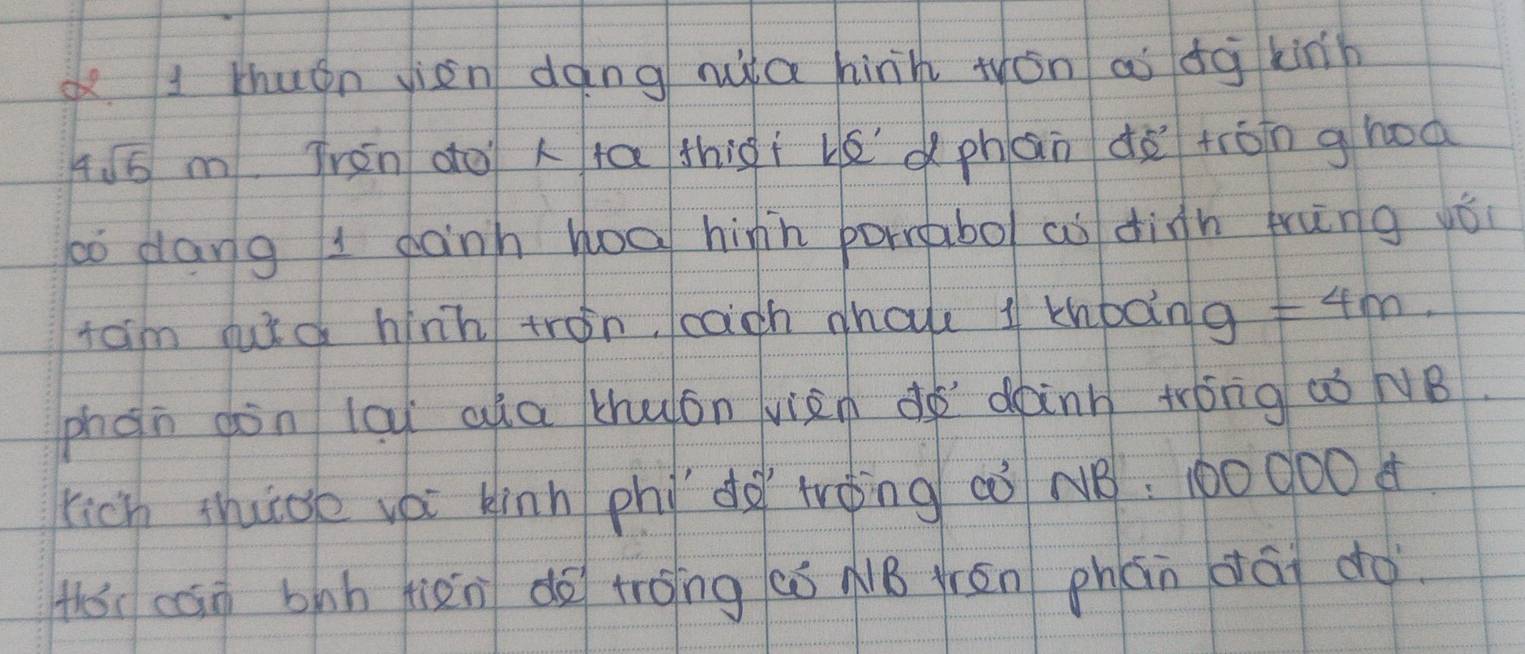 2. 1 khuôn viên dạng nửa hình tròn có đg kính
4√5 m. Trên đó k ta thiết kế 2 phần để trồng hoa
có dạng 1 cánh hoa hình porrabol có đỉnh trùng với
tâm nửa hình tròn, cách nhau 1 khoảng = 4m.
phần còn lại của khuôn viên để dành trồng cỏ NB.
kích thước và kinh phí để trồng cỏ NB: 100 000 đ.
Hỏi cần bnh tiền để trồng cỏ NB trên phần đất đó.